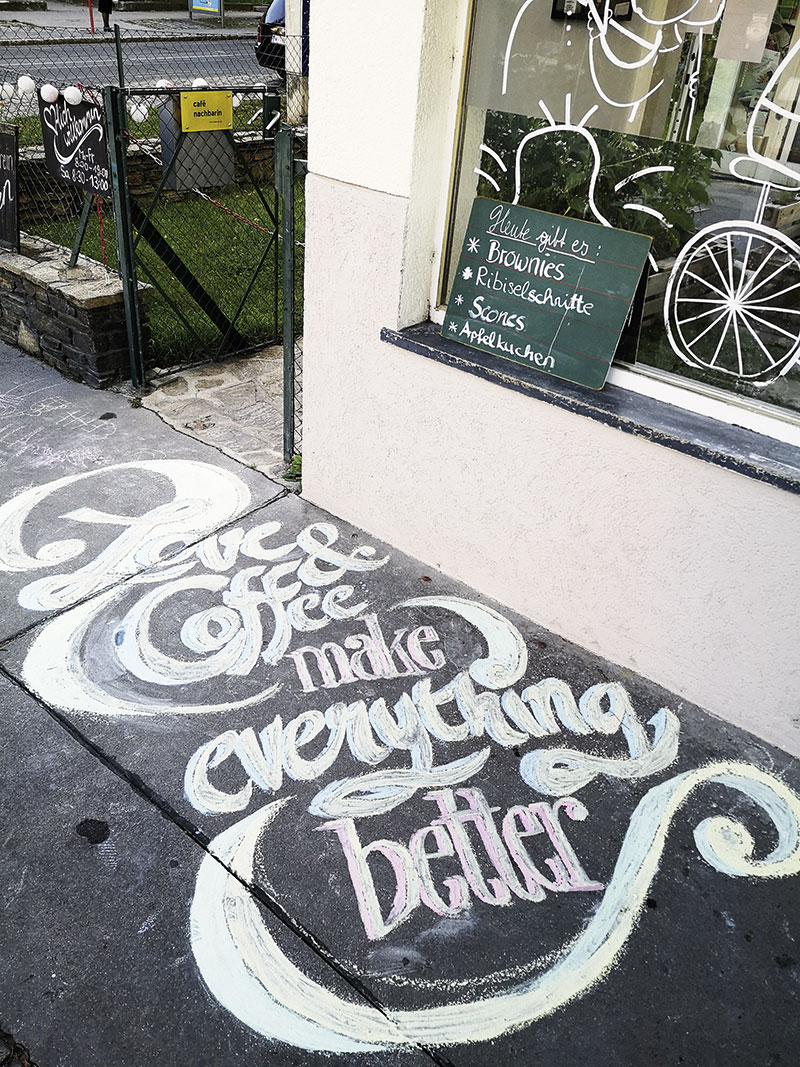 café
nachbarin
Willkommen
Mo-Fr
8:30-19:00
Sa 8:30-13:00
Heute gibt es:
* Brownies
* Ribiselschnitte
* Scones
* Apfelkuchen
Love &
Coffee
make
everything
better